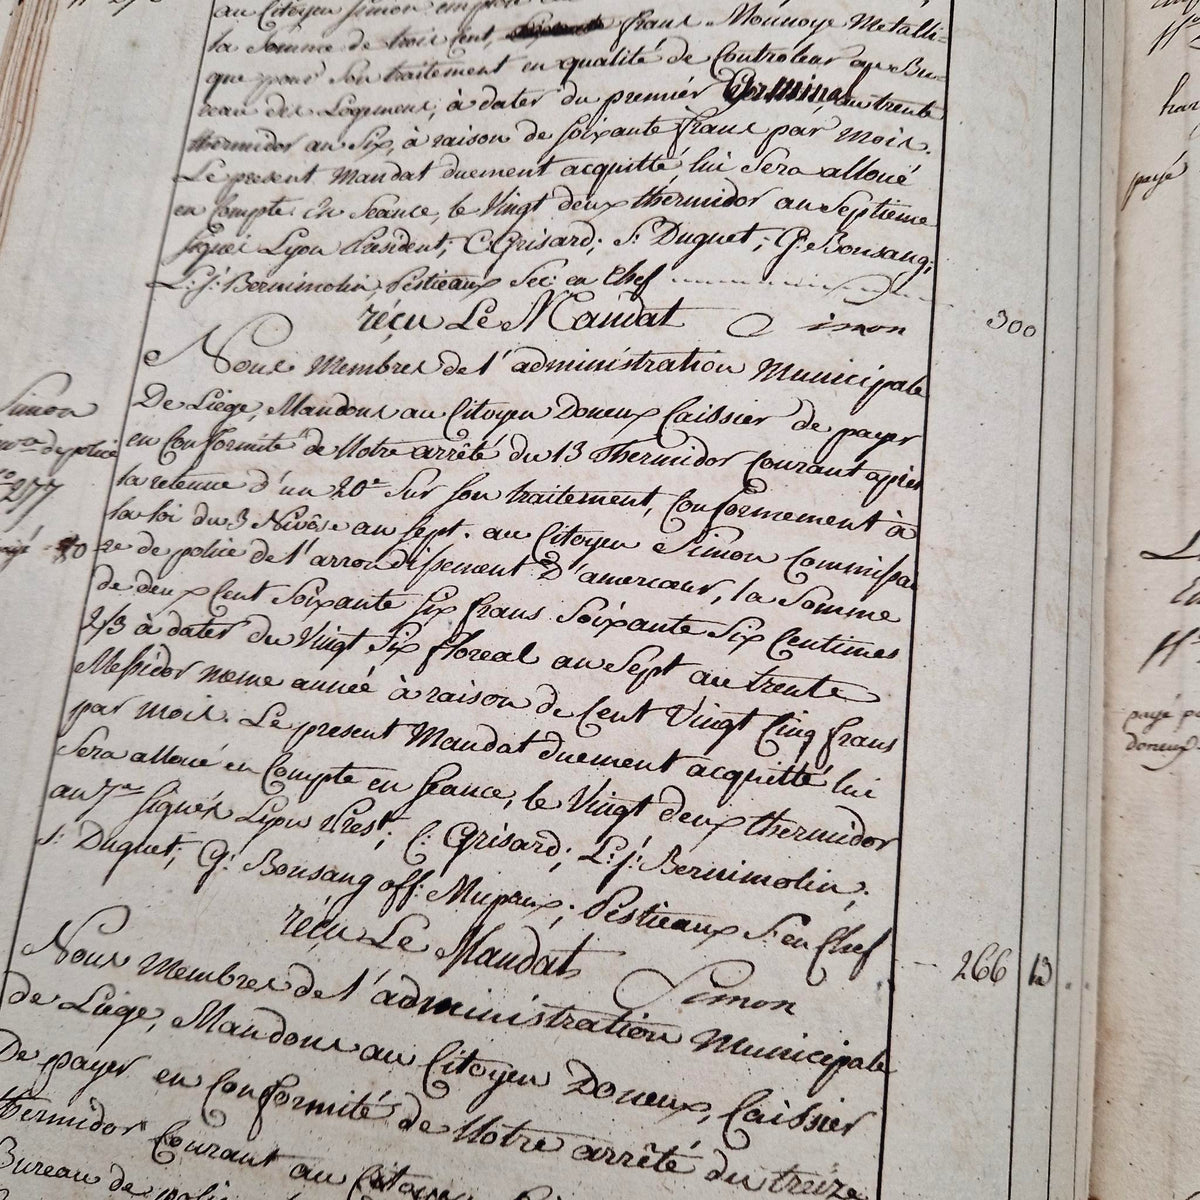 au Citoyen Simon
la Somme de trois cent, frans Monnoye Metalli-
que pour Son traitement en qualité de Controleur au Bu-
reau des Logemens; à dater du premier Germinal au trente
thermidor an Six, à raison de Soixante frans par mois.
Le present Mandat duement acquitté lui Sera alloué
en Compte. En Seance, le Vingt deux thermidor an Septieme
Signés Lyon President; C: Grisard; S: Duguet; G: Bousang;
L: j: Bernimolin, Pestieaux Sec: en Chef
réçu Le Mandat Simon
300
Nous Membres de l'administration Municipale
De Liége, Mandons au Citoyen Doneux Caissier de payer
en Conformité de Notre arrêté du 13 Thermidor Courant après
la retenue d'un 20e Sur Son traitement, Conformement à
la loi du 3 Nivôse an Sept. au Citoyen Simon Commissai
re de police de l'arrondissement D'amercœur, la Somme
de deux Cent Soixante Six frans Soixante Six Centimes
2/3 à dater du Vingt Six floreal an Sept au trente
Messidor meme année à raison de Cent Vingt Cinq frans
par mois. Le present Mandat duement acquitté lui
Sera alloué en Compte en Seance, le Vingt deux thermidor
an 7me Signés Lyon Prest; C: Grisard; L: j: Bernimolin;
S: Duguet; G: Bousang off: Mupaux; Pestieaux S: en Chef
Simon
de police
277
réçu Le Mandat Simon
266 13
Nous Membres de l'administration Municipale
de Liége, Mandons au Citoyen Doneux, Caissier
De payer en Conformité de Notre arrêté du treize
thermidor Courant au Citoyen
Bureau de police
payé
payé
doneux